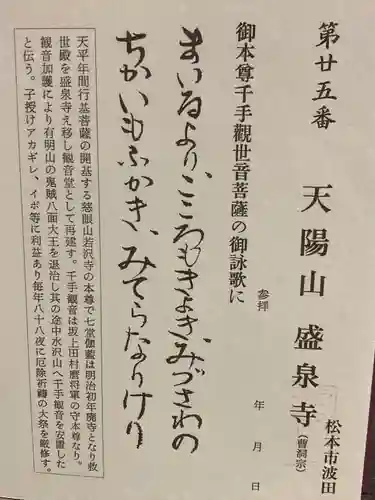 第廿五番 天陽山 盛泉寺 (曹洞宗) 松本市波田
参拝 年 月 日
御本尊千手觀世音菩薩の御詠歌に
まいるより、こころもきよき、みづさわの
ちかいもふかき、みてらなりけり
天平年間行基菩薩の開基する慈眼山若沢寺の本尊で七堂伽藍は明治初年廃寺となり救
世殿を盛泉寺え移し観音堂として再建す。千手観音は坂上田村麿将軍の守本尊なり。
観音加護により有明山の鬼賊八面大王を退治し其の途中水沢山へ千手観音を安置した
と伝う。子授けアカギレ、イボ等に利益あり毎年八十八夜に厄除祈祷の大祭を厳修す。